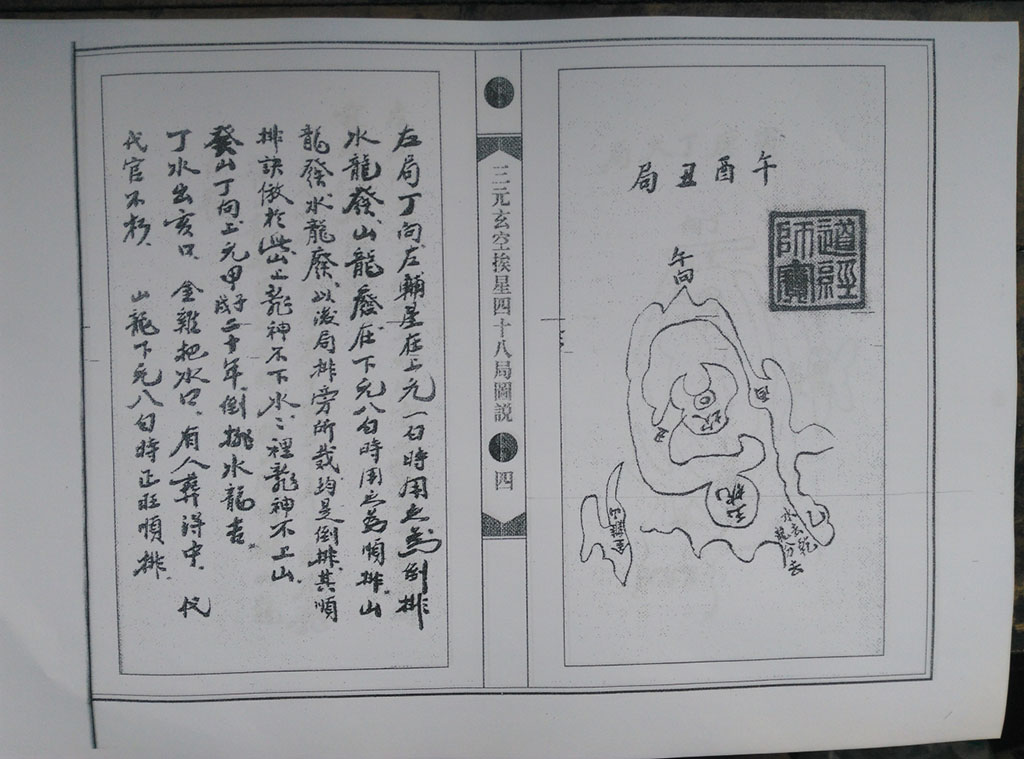 午酉丑局
道經師寶
午向
酉
丑
金雞山
水去乾
三元玄空挨星四十八局圖説
四
左局丁向左輔星在上元一白時用之爲倒排
水龍發山龍廢在下元八白時用之爲順排山
龍發水龍廢以後局排旁所載均是倒排其順
排訣倣於此山上龍神不下水水裡龍神不上山
癸山丁向上元甲子戌二十年倒排水龍吉
丁水出亥口金雞把水口有人葬得中代
代官不朽 山龍下元八白時正旺順排